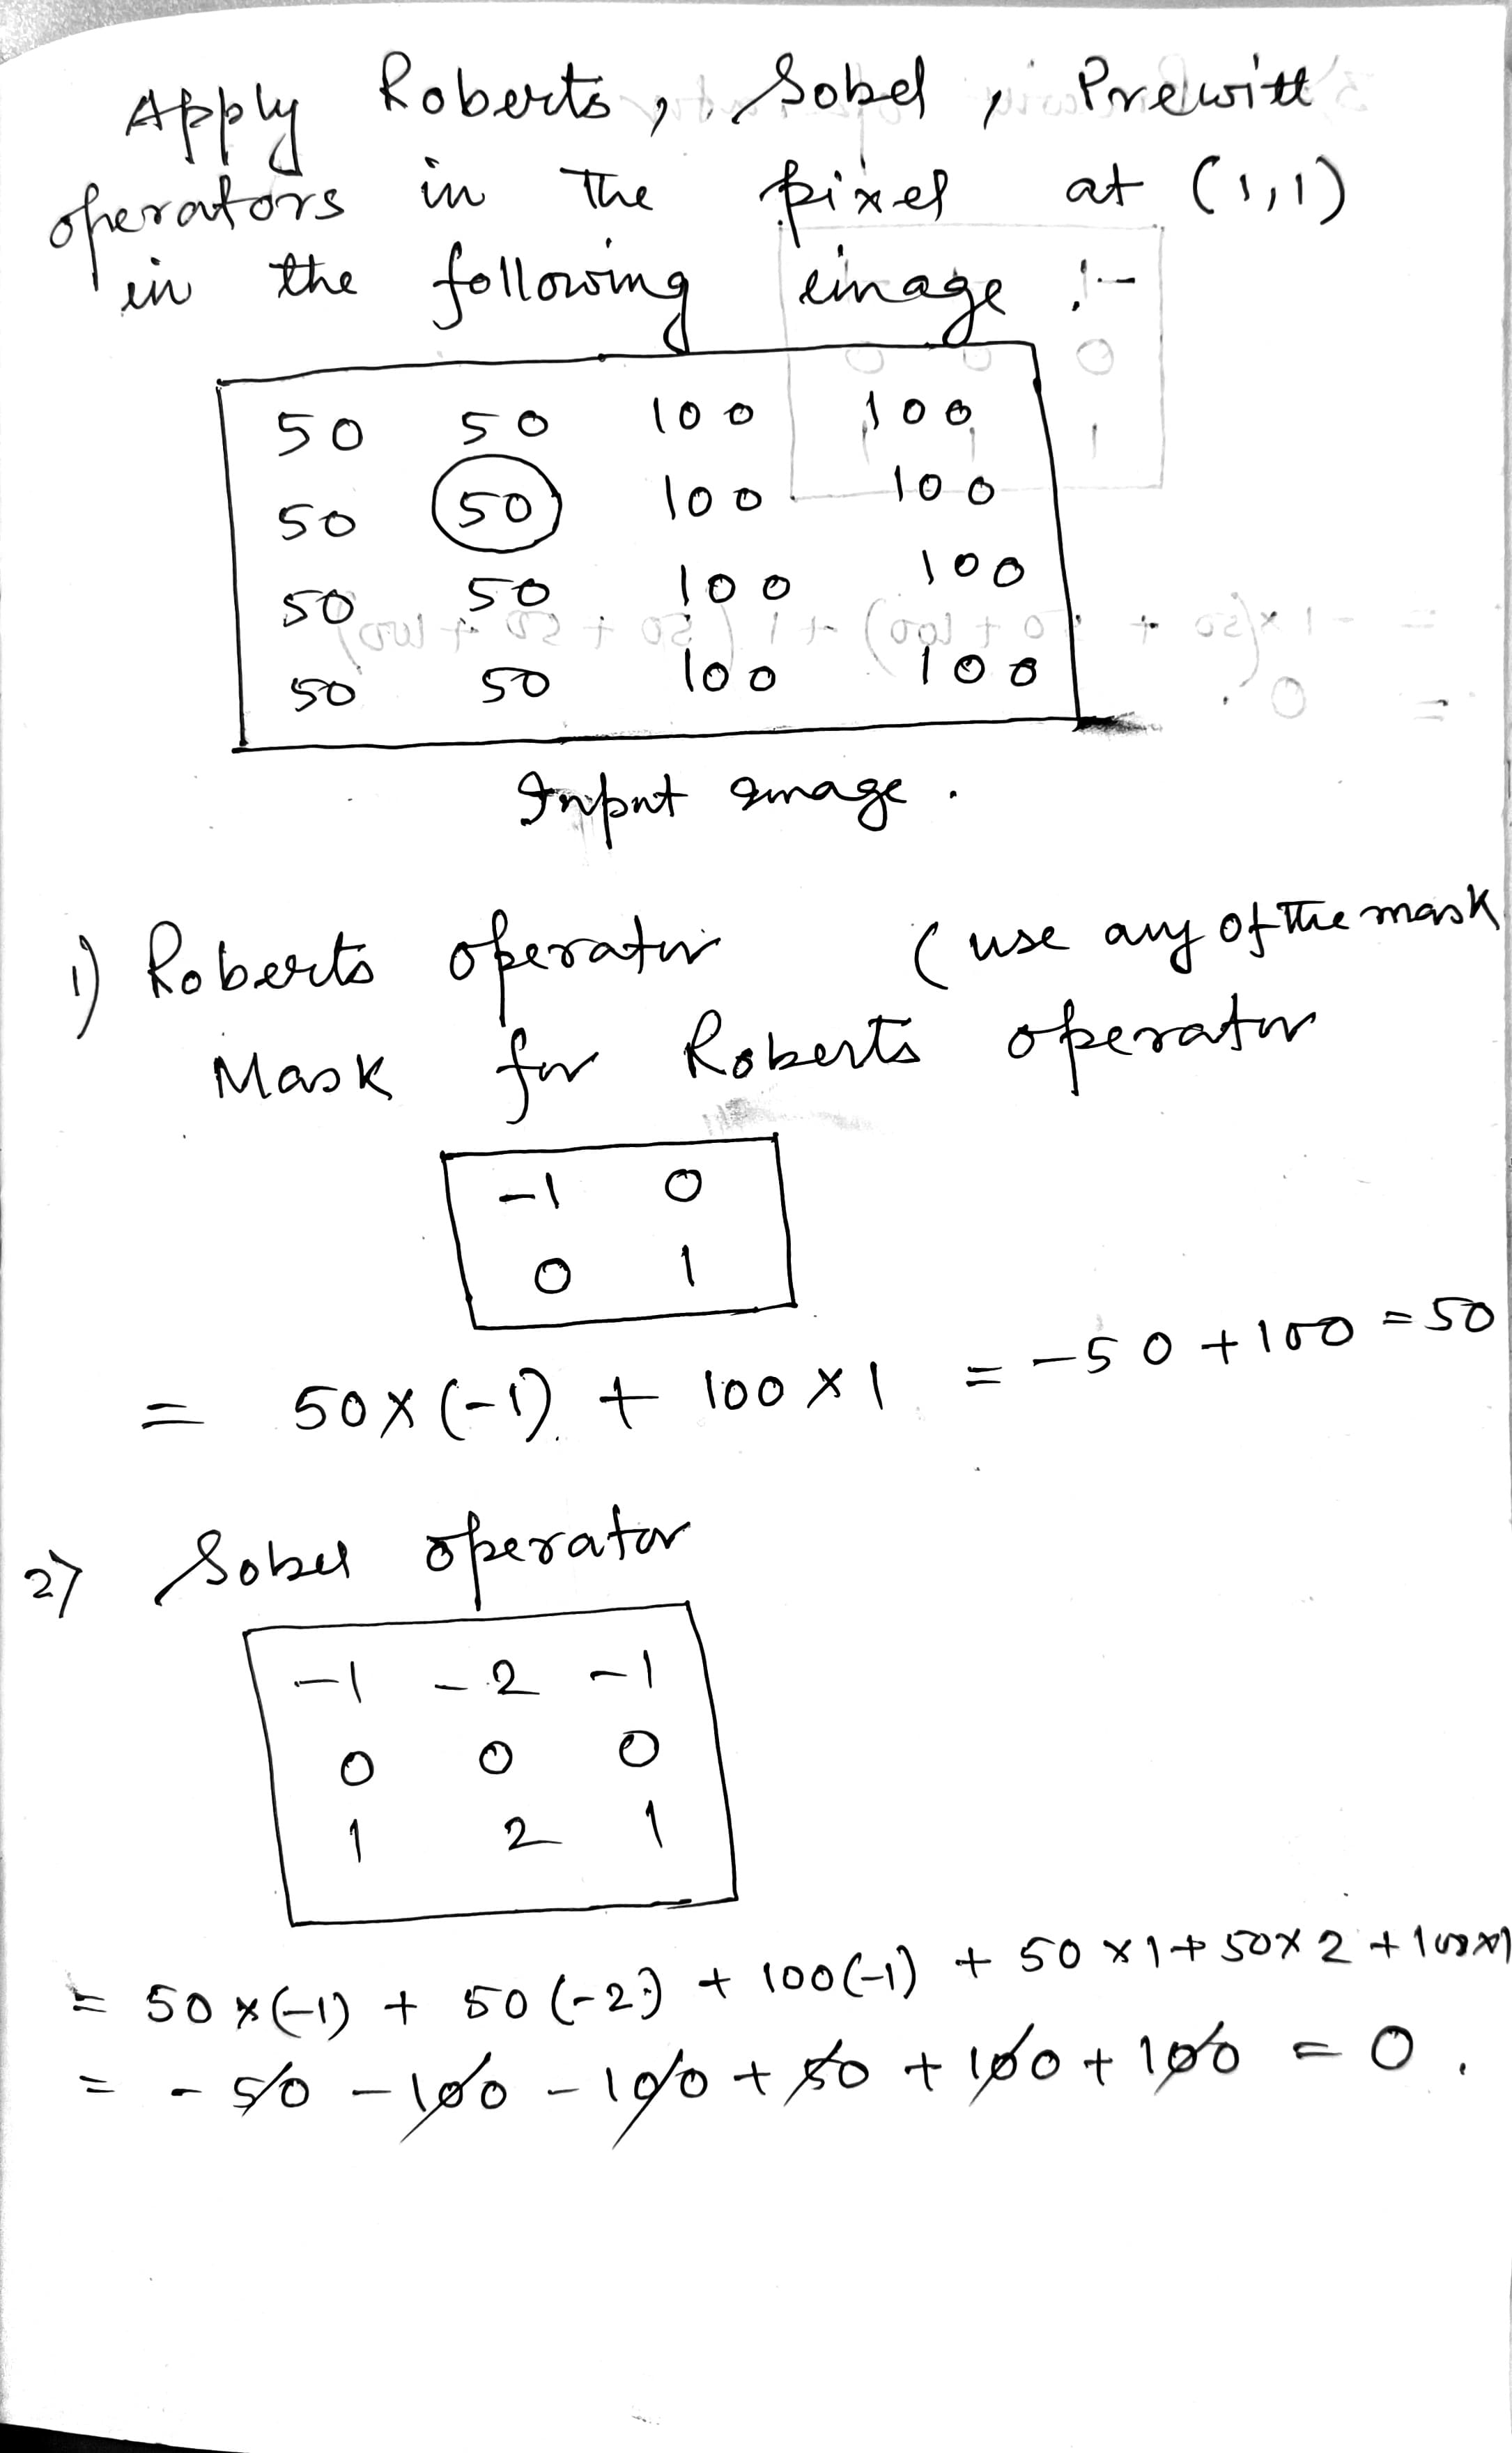 Apply Roberts, Sobel, Prewitt
operators in the pixel at (1,1)
in the following image :-
50 50 100 100
50 50 100 100
50 50 100 100
50 50 100 100
Input image.
1) Roberts operator (use any of the mask
Mask for Roberts operator
-1 0
0 1
= 50×(-1) + 100×1 = -50+100 = 50
2) Sobel operator
-1 -2 -1
0 0 0
1 2 1
= 50×(-1) + 50(-2) + 100(-1) + 50×1+50×2+100×1
= -50-100-100+50+100+100 = 0.